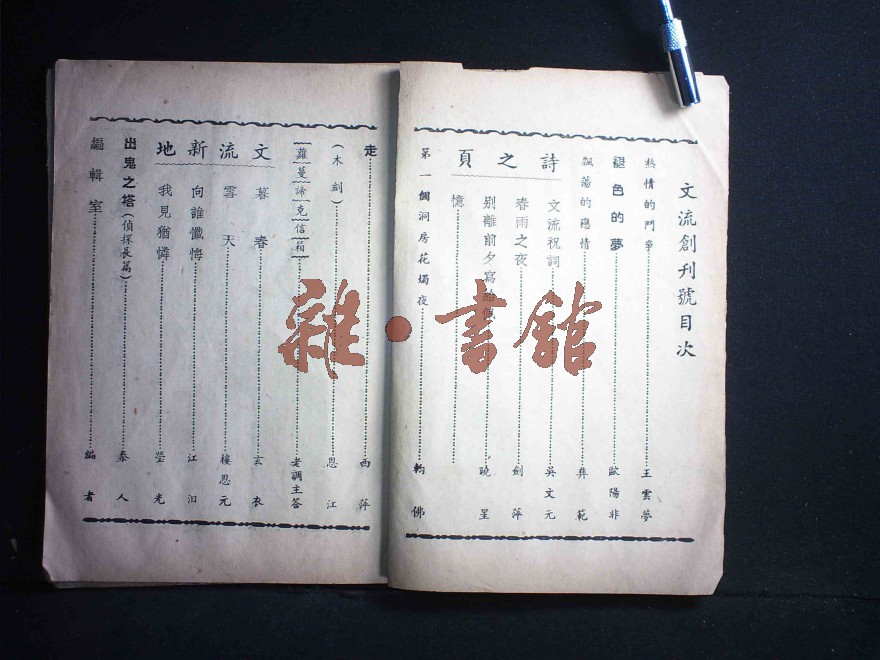 文流創刊號目次
熱情的鬥爭 王雲夢
褪色的夢 歐陽非
飄蕩的戀情 彝範
詩之頁
文流祝詞 吳文元
春雨之夜 劍萍
別離前夕寫給 曉星
憶
第一個洞房花燭夜 軔佛
走 西萍
(木刻) 恩江
羅曼諦克信箱 老調主答
文流新地
暮春 玄衣
雪天 樓恩元
向誰懺悔 江汩
我見猶憐 瑩光
出鬼之塔(偵探長篇) 泰人
編輯室 編者
雜·書館